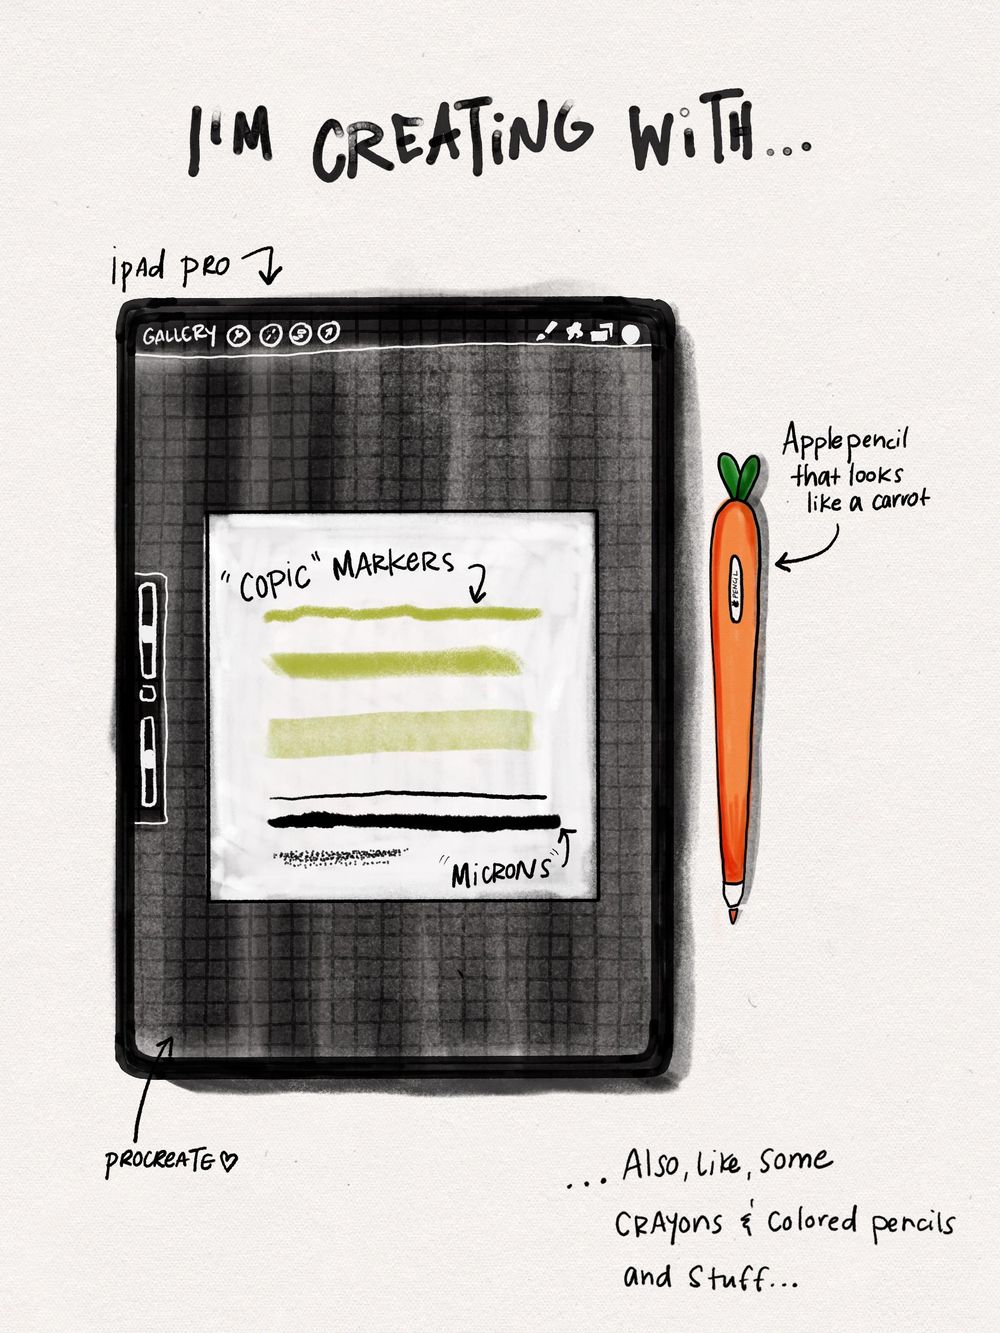 I'M CREATiNG WiTH...
ipAd pRO
GALLERY
Apple pencil
that looks
like a carrot
PENCIL
"COPiC" MARKERS
"MiCRONS"
PROCREATE♡
... Also, like, some
CRAyons & Colored pencils
and stuff...